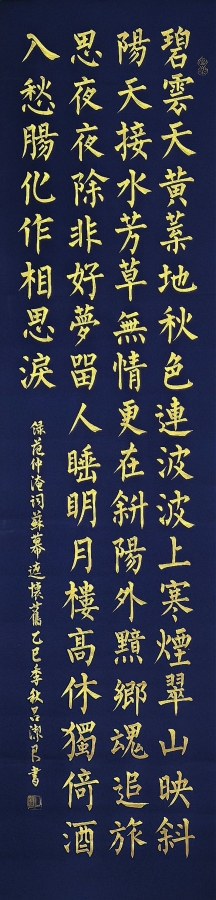 碧雲天黃葉地秋色連波波上寒煙翠山映斜
陽天接水芳草無情更在斜陽外黯鄉魂追旅
思夜夜除非好夢留人睡明月樓高休獨倚酒
入愁腸化作相思淚
錄范仲淹詞蘇幕遮懷舊乙巳季秋呂潔書